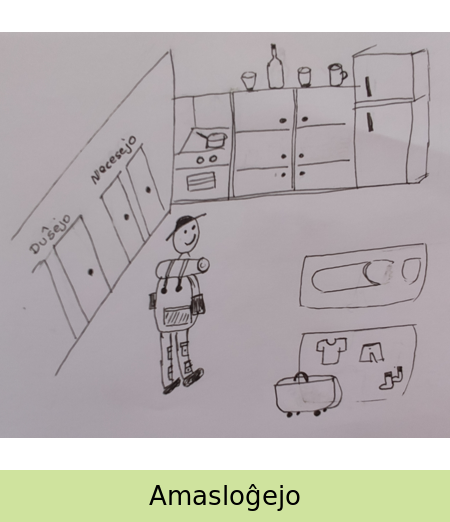 Duŝejo
Necesejo
Amasloĝejo